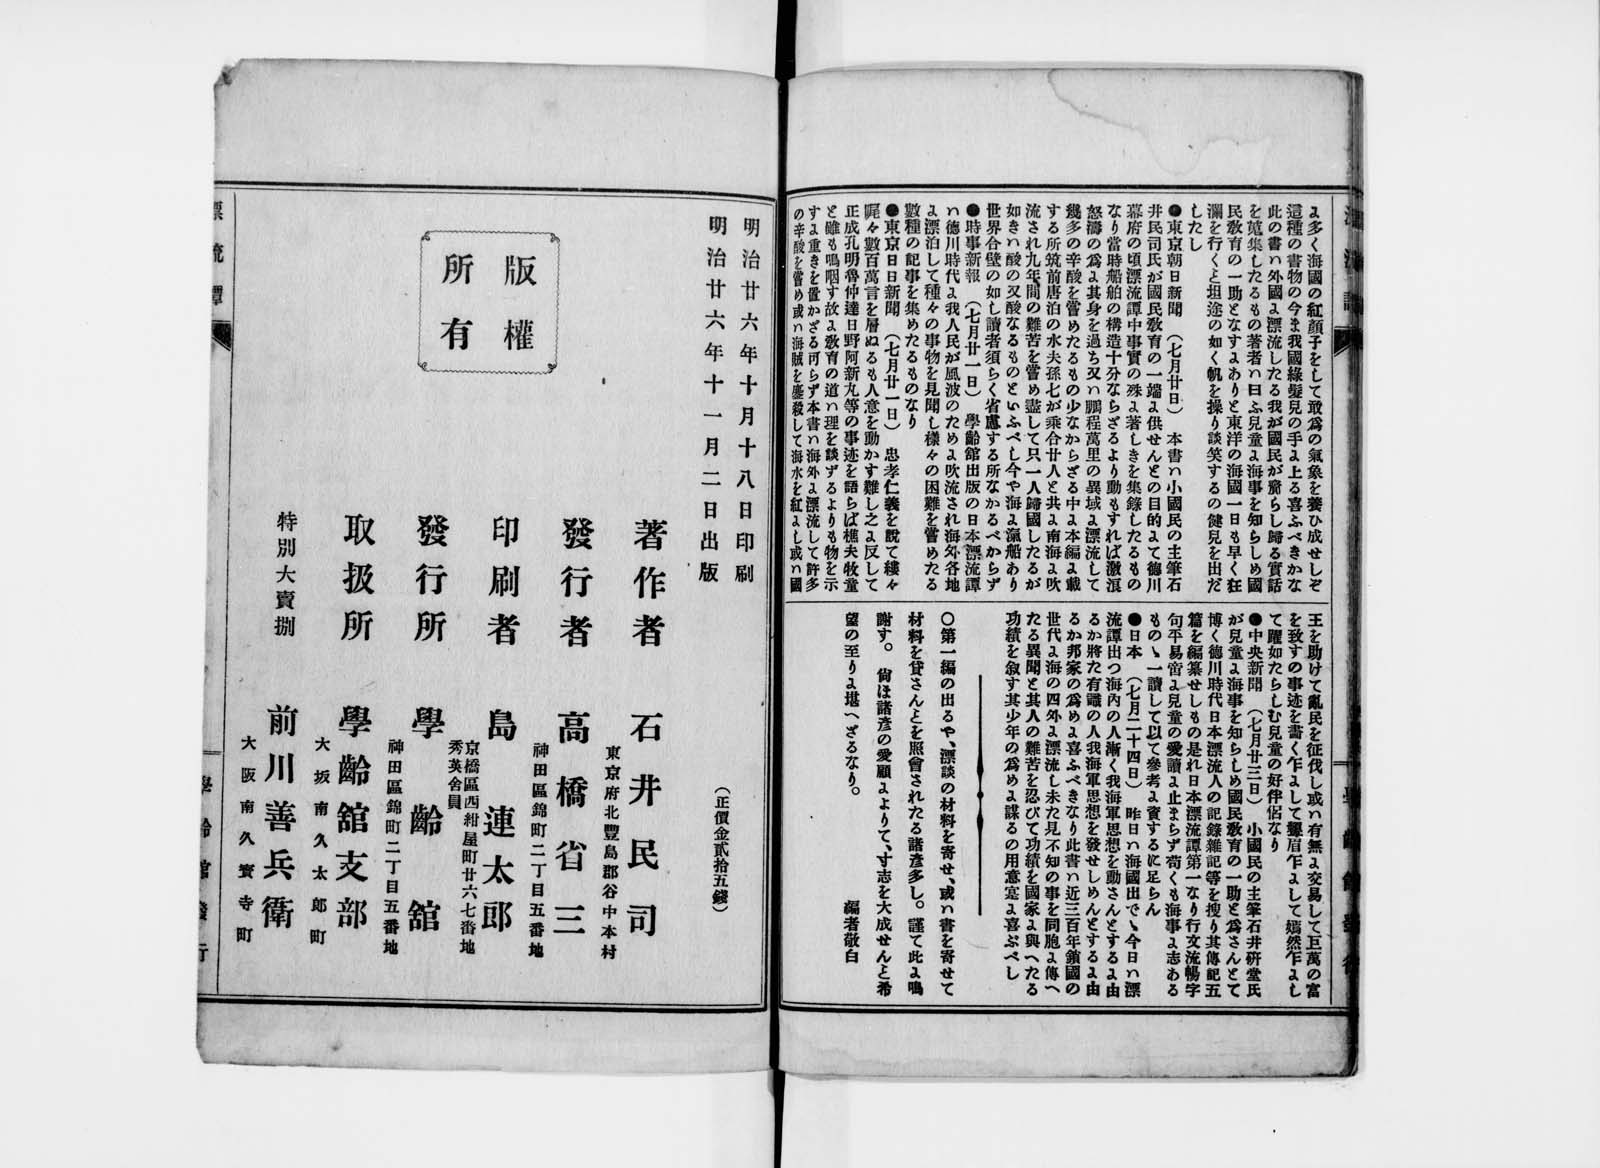 よ多く海國の紅顏子をして敢爲の氣象を養ひ成せしぞ
這種の書物の今ま我國綠髮兒の手よ上る喜ふべきかな
此の書ハ外國よ漂流したる我が國民が齎らし歸る實話
を蒐集したるもの著者ハ曰ふ兒童よ海事を知らしめ國
民敎育の一助となすよありと東洋の海國一日も早く狂
瀾を行くと坦途の如く帆を操り談笑するの健兒を出だ
したし
●東京朝日新聞(七月廿日) 本書ハ小國民の主筆石
井民司氏が國民敎育の一端よ供せんとの目的よて德川
幕府の頃漂流譚中事實の殊よ著しきを集錄したるもの
なり當時船舶の構造十分ならざるより動もすれば激浪
怒濤の爲よ其身を過ち又ハ鵬程萬里の異域よ漂流して
幾多の辛酸を嘗めたるもの少なからざる中よ本編よ載
する所筑前唐泊の水夫孫七が乘合廿人と共よ南海よ吹
流され九年間の難苦を嘗め盡して只一人歸國したるが
如きハ酸の又酸なるものといふべし今や海よ瀛船あり
世界合壁の如し讀者須らく省慮する所なかるべからず
●時事新報 (七月廿一日) 學齡館出版の日本漂流譚
ハ德川時代よ我人民が風波のためよ吹流され海外各地
よ漂泊して種々の事物を見聞し樣々の困難を嘗めたる
數種の記事を集めたるものなり
●東京日日新聞(七月廿一日) 忠孝仁義を說て縷々
娓々數百萬言を層ぬるも人意を動かす難し之よ反して
正成孔明魯仲達日野阿新丸等の事迹を語らば樵夫牧童
と雖も嗚咽す故よ敎育の道ハ理を談ずるよりも物を示
すよ重きを置かざる可らず本書ハ海外よ漂流して許多
の辛酸を嘗め或ハ海賊を鏖殺して海水を紅よし或ハ國
王を助けて亂民を征伐し或ハ有無よ交易して巨萬の富
を致すの事迹を書く乍よして顰眉乍よして嫣然乍よし
て躍如たらしむ兒童の好伴侶なり
●中央新聞 (七月廿三日) 小國民の主筆石井硏堂氏
が兒童よ海事を知らしめ國民敎育の一助と爲さんとて
博く德川時代日本漂流人の記錄雜記等を搜り其傳記五
篇を編纂せしもの是れ日本漂流譚第一なり行文流暢字
句平易啻よ兒童の愛讀よ止まらず苟くも海事よ志ある
ものゝ一讀して以て參考よ資するに足らん
●日本(七月二十四日) 昨日ハ海國出でゝ今日ハ漂
流譚出つ海內の人漸く我海軍思想を動さんとするよ由
るか將た有識の人我海軍思想を發せしめんとするよ由
るか邦家の爲めよ喜ふべきなり此書ハ近三百年鎖國の
世代よ海の四外よ漂流し未た見不知の事を同胞よ傳へ
たる異聞と其人の難苦を忍びて功績を國家よ與へたる
功績を敍す其少年の爲めよ謀るの用意寔よ喜ぶべし
○第一編の出るや、漂談の材料を寄せ、或ハ書を寄せて
材料を貸さんとを照會されたる諸彥多し。謹て此よ鳴
謝す。尙ほ諸彥の愛顧よよりて、寸志を大成せんと希
望の至りよ堪へざるなり。
編者敬白
明治廿六年十月十八日印刷
明治廿六年十一月二日出版
(正價金貳拾五錢)
版權
所有
著作者 石井民司
東京府北豐島郡谷中本村
發行者 高橋省三
神田區錦町二丁目五番地
印刷者 島連太郎
京橋區西紺屋町廿六七番地
秀英舍員
發行所 學齡舘
神田區錦町二丁目五番地
取扱所 學齡舘支部
大坂南久太郎町
特別大賣捌 前川善兵衛
大阪南久寳寺町
漂流譚
學齡舘發行